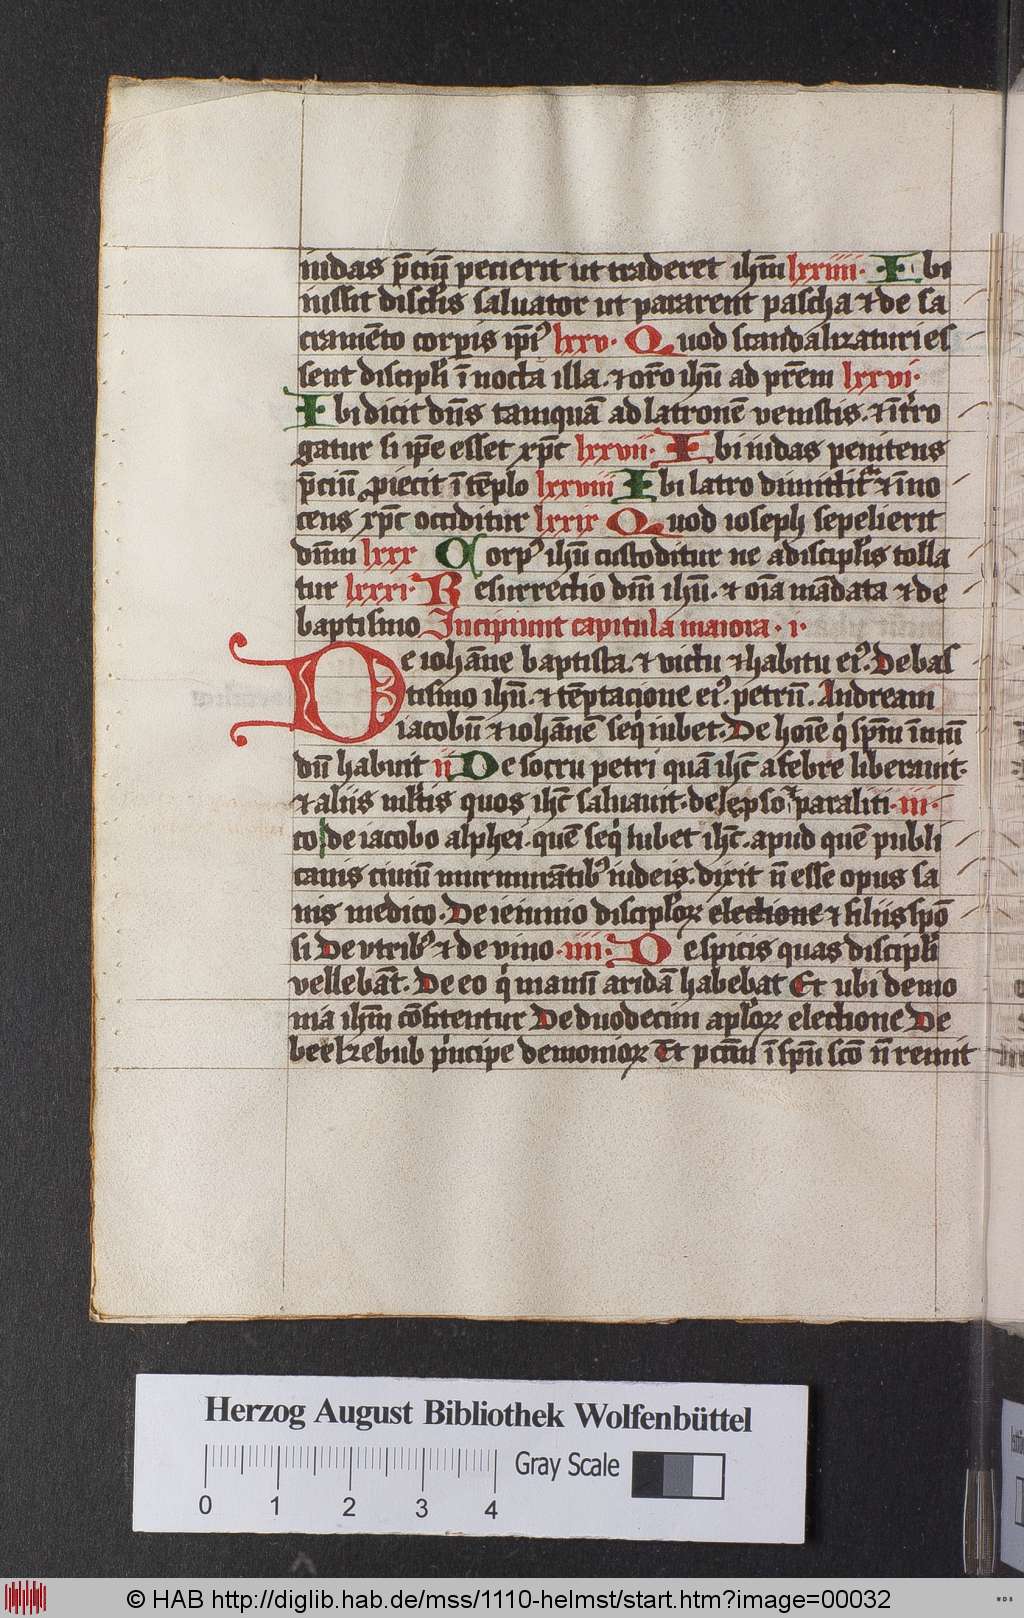 iudas p̄ciū pecierit ut traderet ihm̄ lxxiiii. Ibi
iussit discl̄is saluator ut pararent pascha ⁊ de sa
cramēto corꝑis ip̄iꝰ lxxv. Quod scandalizaturi es
sent discipl̄i ī nocta illa. ⁊ or̄o ihū ad pr̄em lxxvi.
Ibi dicit dn̄s tamquā ad latronē venistis. ⁊ īt̄ro
gatur si ip̄e esset xp̄c lxxvii. Ibi iudas penitens
p̄ciū ꝓiecit ī tēplo lxxviii Ibi latro dimittit᷑ ⁊ īno
cens xp̄c occiditur lxxix Quod ioseph sepelierit
dn̄m lxxx Corpꝰ ihū custoditur ne a discipl̄is tolla
tur lxxxi. Resurrectio dn̄i ihū. ⁊ oīa mādata ⁊ de
baptismo Incipiunt capitula maiora. i.
De iohāne baptista. ⁊ victu ⁊ habitu eiꝰ. De bas
tismo ihū. ⁊ tēptacione eiꝰ. petrū. Andream
iacobū ⁊ iohānē seq̇ iubet. De hoīe q̇ spm̄ īmū
dū habuit ii De socru petri quā ihc̄ a febre liberauit.
⁊ aliis mltis quos ihc̄ saluauit. de lepso. paraliti. iii.
co de iacobo alphei. quē seq̇ iubet ihc̄. apud quē publi
canis ciuiū murmurātibꝰ iudeis. dixit n̄ esse opus sa
nis medico. De ieiunio discipl̄oꝝ electione ⁊ filiis spō
si De vtribꝰ ⁊ de vino. iiii. De spicis quas discipl̄i
vellebāt. De eo q̇ manū aridā habebat Et ubi demo
nia ihm̄ cōfitentur De duodecim apl̄oꝝ electione De
beelzebub ṗncipe demonioꝝ Et pctm̄ ī spm̄ scō n̄ remit
Herzog August Bibliothek Wolfenbüttel
Gray Scale
0 1 2 3 4
© HAB http://diglib.hab.de/mss/1110-helmst/start.htm?image=00032